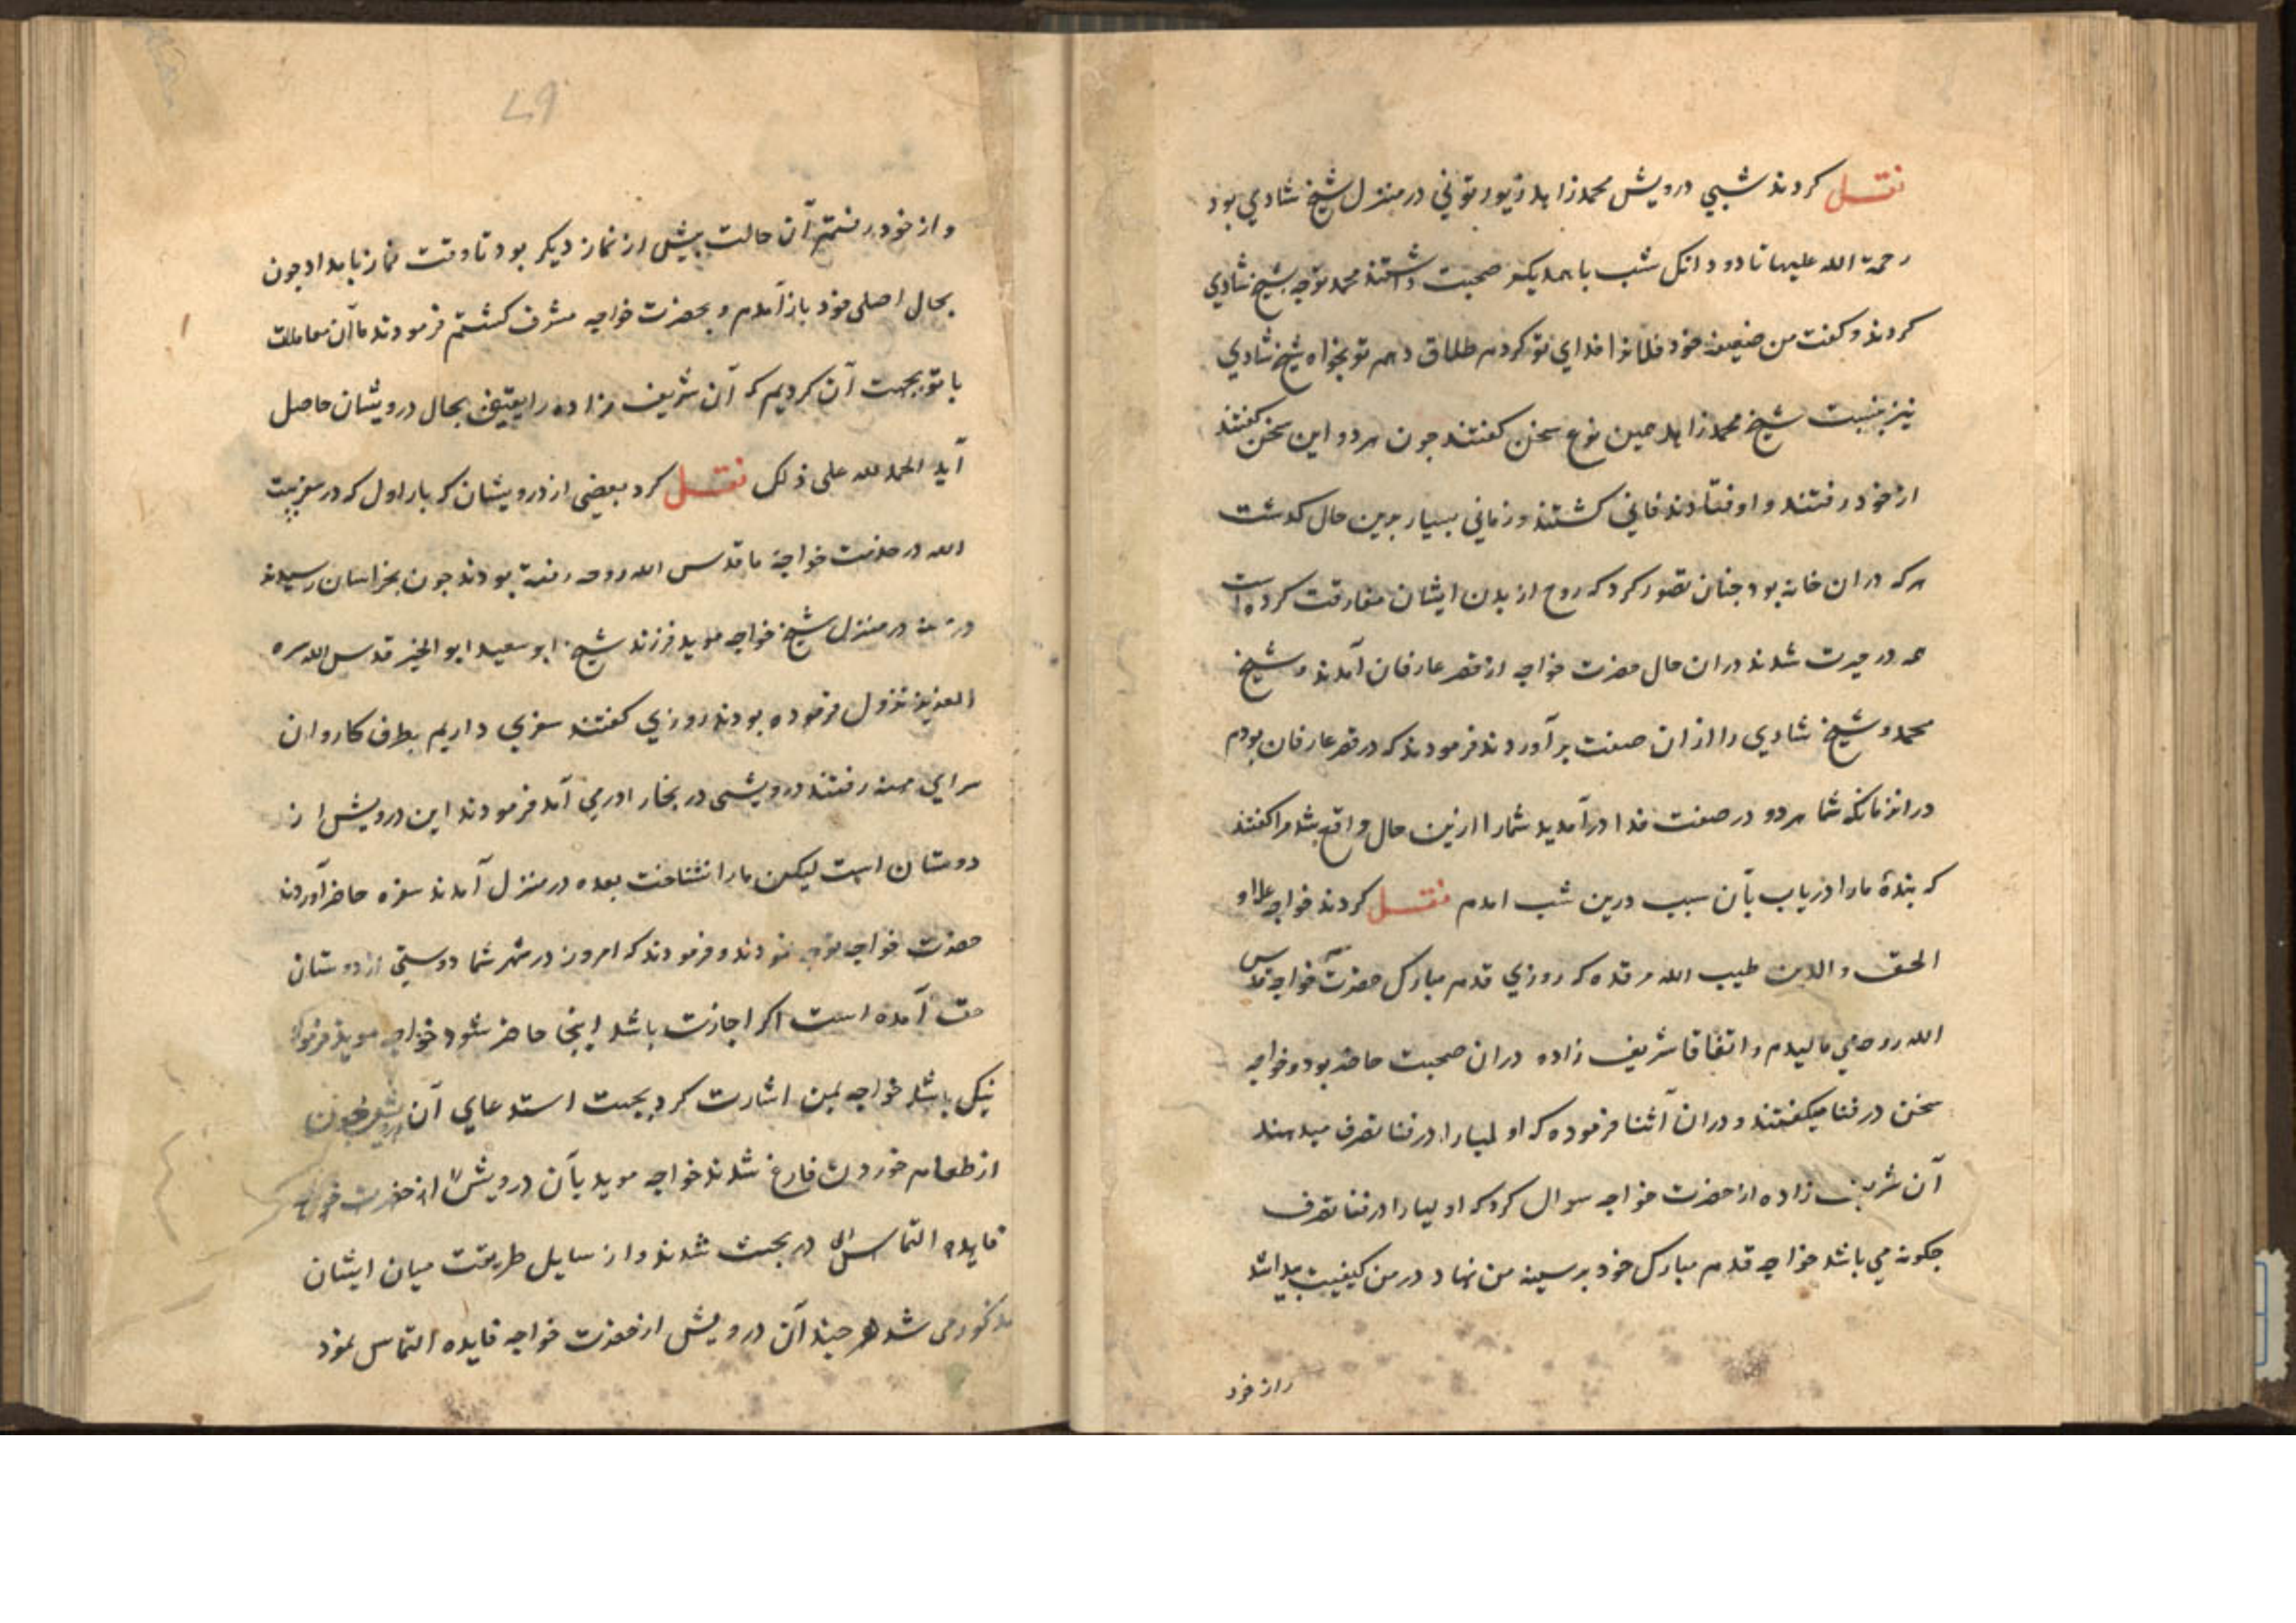 نقل کردند شبی درویش محمد زاهد زیورتونی در منزل شیخ شادی بود
رحمة الله علیها تا دو دانک شب با همدیکر صحبت داشتند محمد توجه بشیخ شادی
کردند و کفت من ضعیفه خود فلانرا فدای تو کردم طلاق دهم تو بخواه شیخ شادی
نیز بنسبت شیخ محمد زاهد همین نوع سخن کفتند جون هر دو این سخن کفتند
از خود رفتند و اوفتادند فانی کشتند و زمانی بسیار برین حال کذشت
هر که در ان خانه بود جنان تصور کرد که روح از بدن ایشان مفارقت کرده است
همه در حیرت شدند در ان حال حضرت خواجه از قصر عارفان آمدند و شیخ
محمد و شیخ شادی را از ان صفت بر آوردند فرمودند که در قصر عارفان بودم
در انزمانکه شما هر دو در صفت فدا در آمدید شما را ازین حال واقع شد مرا کفتند
که بندهٔ ما را دریاب بآن سبب درین شب امدم نقل کردند خواجه علاو
الحق والدین طیب الله مرقده که روزی قدم مبارک حضرت خواجه قدس
الله روحه می مالیدم و اتفاقا شریف زاده در ان صحبت حاضر بود و خواجه
سخن در فنا میکفتند و در ان آثنا فرموده که اولیا را در فنا تصرف میدهند
آن شریف زاده از حضرت خواجه سوال کرد که اولیا را در فنا تصرف
جکونه می باشد خواجه قدم مبارک خود بر سینه من نهاد در من کیفیت پیدا شد
و از خود
و از خود رفتم آن حالت پیش از نماز دیکر بود تا وقت نماز بامداد جون
بحال اصلی خود باز آمدم و بحضرت خواجه مشرف کشتم فرمودند ما آن معاملت
با تو بجهت آن کردیم که آن شریف زاده را یقین بحال درویشان حاصل
آید الحمد لله علی ذلک نقل کرد بعضی از درویشان که بار اول که در سفر بیت
الله در خدمت خواجه ما قدس الله روحه رفته بودند جون بخراسان رسیدند
در مهنه در منزل شیخ خواجه موید فرزند شیخ ابو سعید ابو الخیر قدس الله سره
العزیز نزول فرموده بودند روزی کفتند سفری داریم بطرف کاروان
سرای مهنه رفتند درویشی در بخار ادر می آمد فرمودند این درویش از
دوستان است لیکن ما را نشناخت بعده در منزل آمدند سفره حاضر آوردند
حضرت خواجه توجه نمودند و فرمودند که امروز در شهر شما دوستی از دوستان
حق آمده است اکر اجازت باشد اینجا حاضر شود خواجه موید فرمود
نیک باشد خواجه بمن اشارت کرد بجهت استدعای آن درویش جون
از طعام خوردن فارغ شدند خواجه موید بآن درویش از حضرت خواجه
فایده التماس در بحث شدند و از سایل طریقت میان ایشان
مذکور می شد هر جند آن درویش از حضرت خواجه فایده التماس نمود